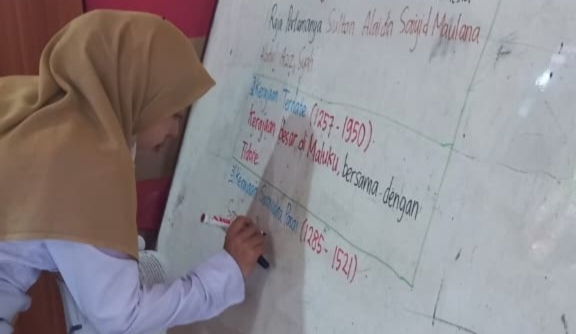 Raja Pertamanya Sultan Alaidin Saiyid Maulana
Abdul Aziz Syah
2 Kerajaan Ternate (1257-1950)
Kerajaan besar di Maluku, bersama dengan
Tidore
3 Kerajaan Samudera Pasai (1285-1521)